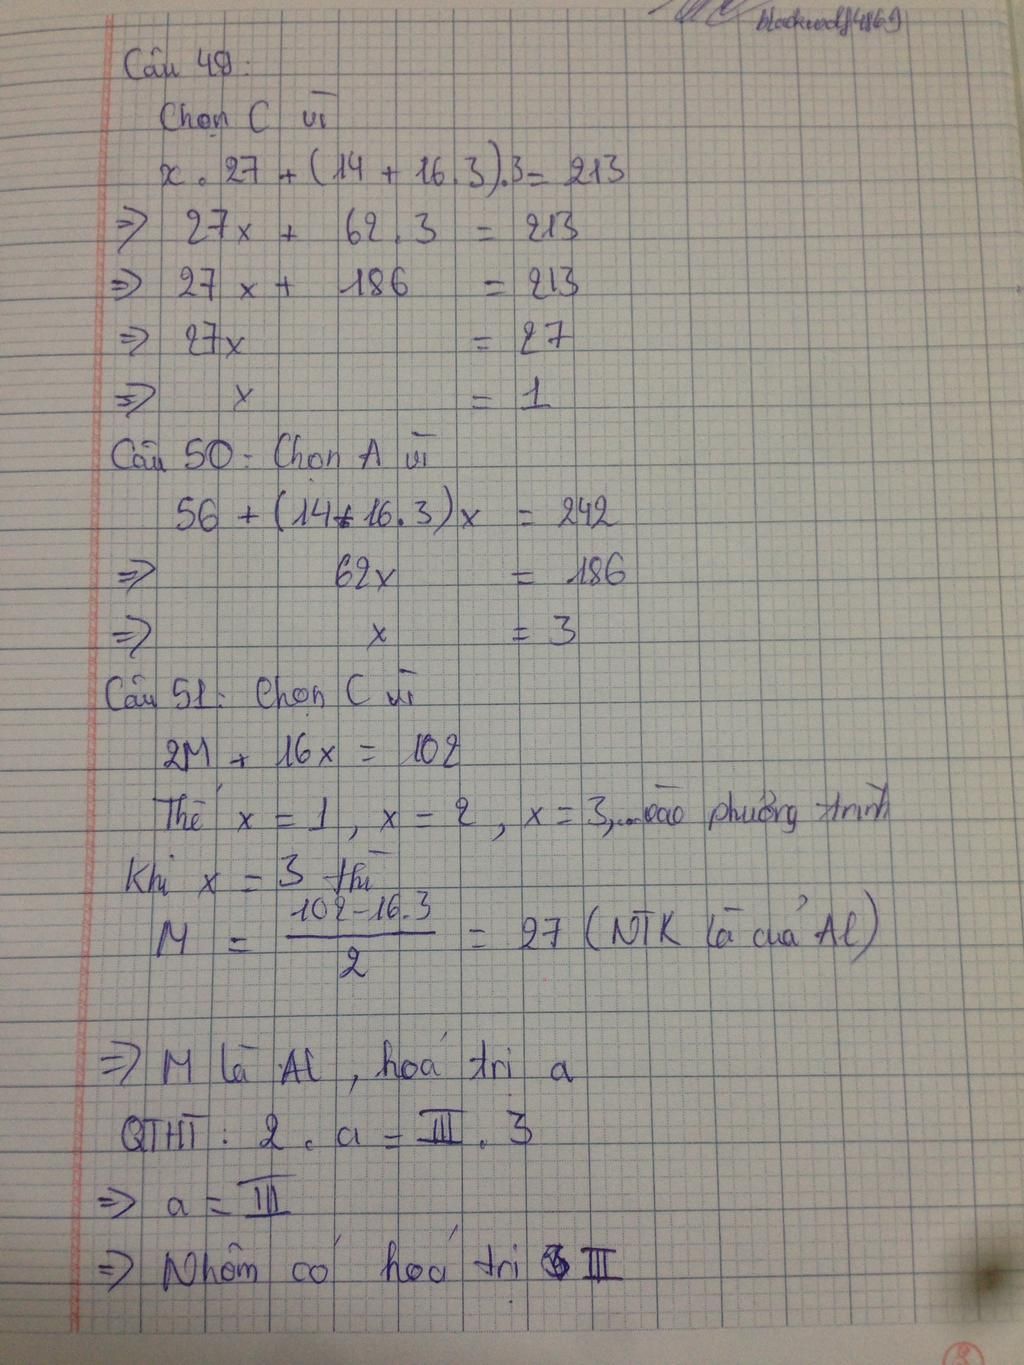 blackwolf4869
Câu 49:
Chọn C vì
x . 27 + (14 + 16.3).3 = 213
=> 27x + 62.3 = 213
=> 27x + 186 = 213
=> 27x = 27
=> x = 1
Câu 50: Chọn A vì
56 + (14+16.3)x = 242
=> 62x = 186
=> x = 3
Câu 51: Chọn C vì
2M + 16x = 102
Thế x = 1, x = 2, x = 3,... vào phương trình
Khi x = 3 thì
M = \frac{102-16.3}{2} = 27 (NTK là của Al)
=> M là Al, hoá trị a
QTHT: 2 . a = III . 3
=> a = III
=> Nhôm có hoá trị III